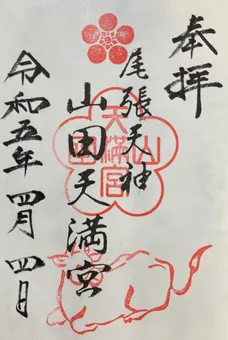 奉拝
尾張天神
山田天満宮
令和五年四月四日
山田天満宮